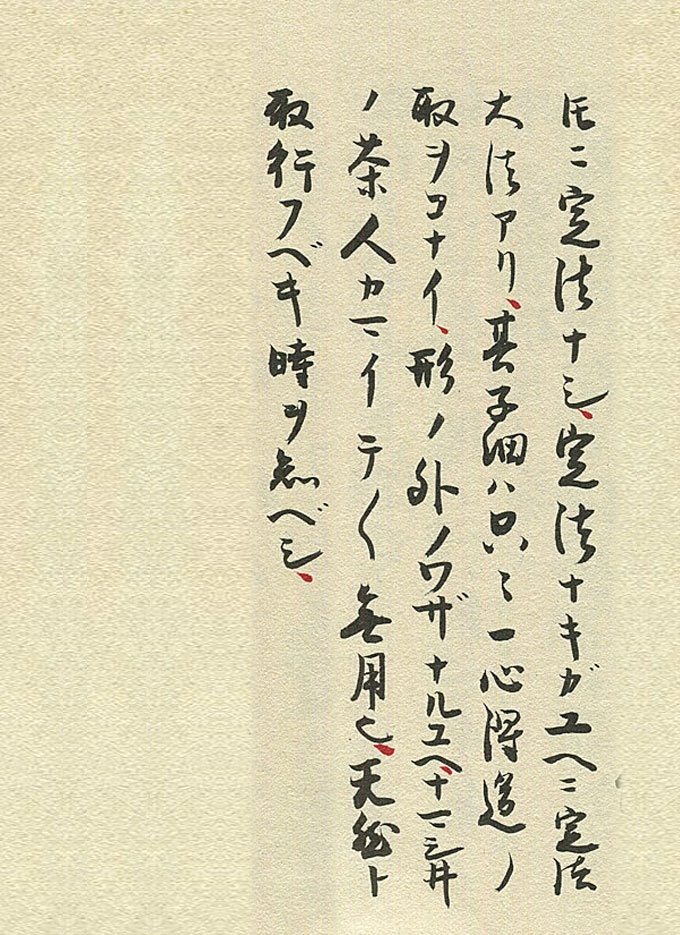 𪜈ニ定法ナシ、定法ナキガユヘニ定法
大法アリ、其子細ハ只〻一心得道ノ
取ヲコナイ、形ノ外ノワザナルユヘ、ナマシ井
ノ茶人カマイテ〱無用也、天然ト
取行フベキ時ヲ知ベシ、